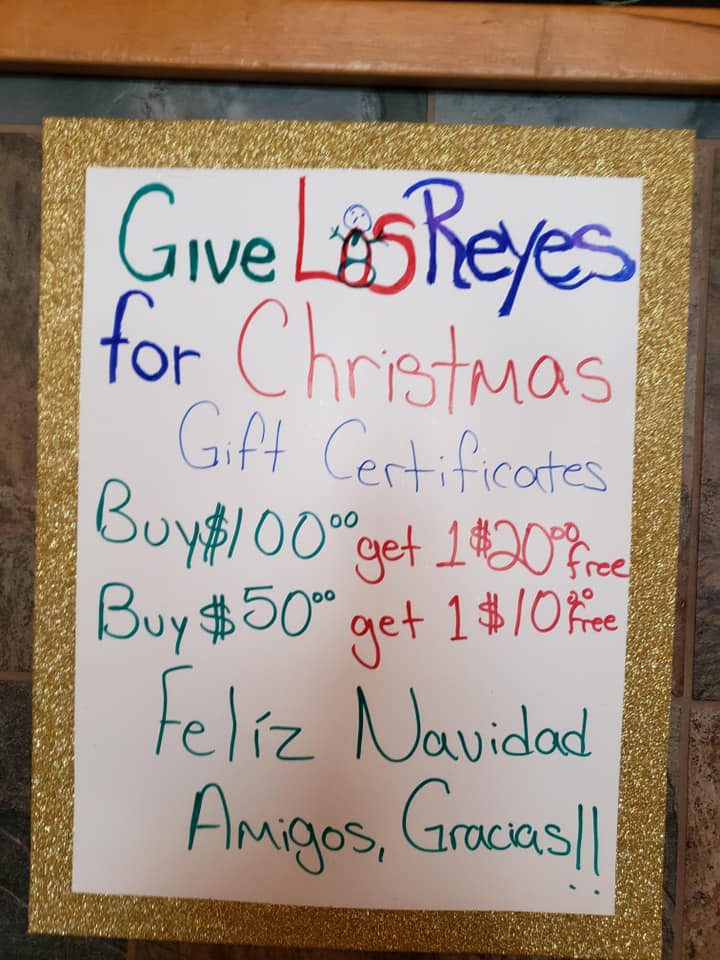 Give Los Reyes
for Christmas
Gift Certificates
Buy $100⁰⁰ get 1 $20⁰⁰ free
Buy $50⁰⁰ get 1 $10⁰⁰ free
Felíz Navidad
Amigos, Gracias!!